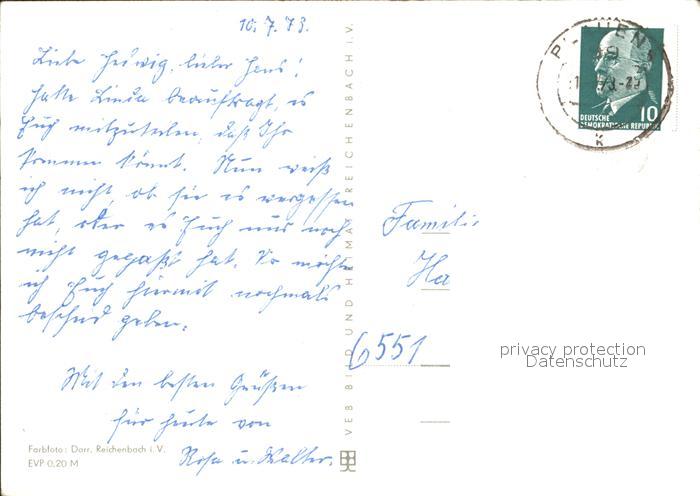 10.7.73.
Liebe Hedwig, lieber Hans!
hatte Linda beauftragt, es
Euch mitzuteilen, daß Ihr
kommen könnt. Nun weiß
ich nicht, ob sie es vergessen
hat, oder es Euch nur noch
nicht gepaßt hat. So möchte
ich Euch hiermit nochmals
bescheid geben.
Mit den besten Grüßen
für heute von
Rosa u. Walter.
Farbfoto: Darr, Reichenbach i. V.
EVP 0,20 M
VEB BILD UND HEIMAT REICHENBACH I. V.
PLAUEN
10
DEUTSCHE
DEMOKRATISCHE REPUBLIK
k
Familie
Ha
6551
privacy protection
Datenschutz